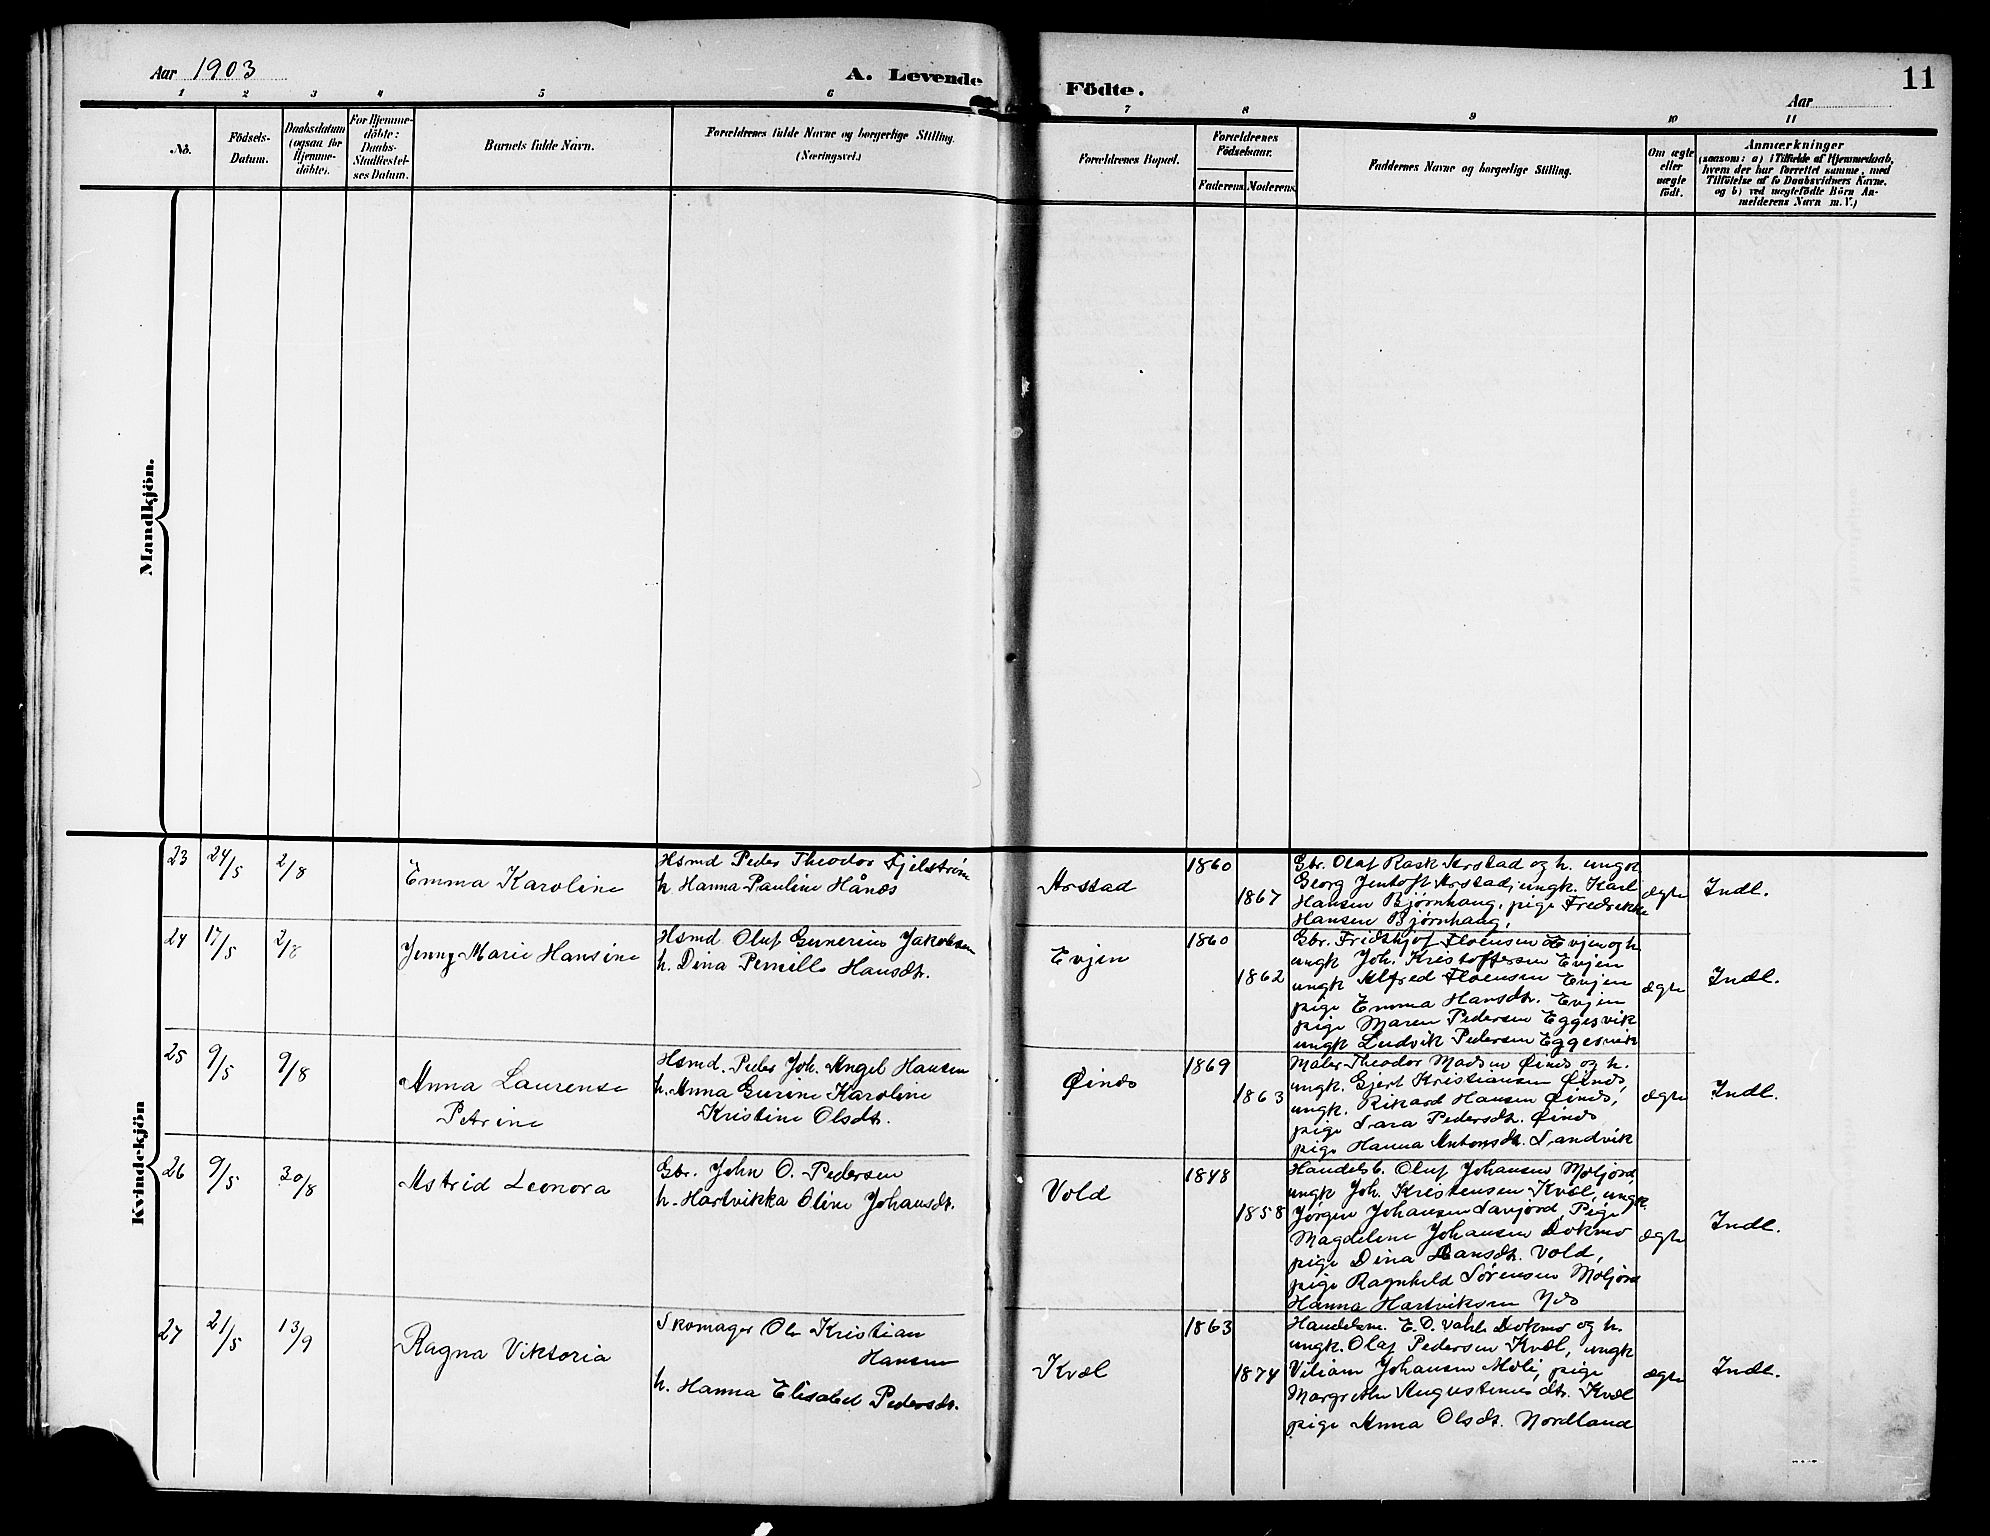 Aar 1903
A. Levende
Födte.
11
Aar
1 2 3 4 5 6 7 8 9 10 11
No.
Födsels-
Datum.
Daabsdatum
(ogsaa for
Hjemme-
döbte).
For Hjemme-
döbte:
Daabs-
Stadfæstel-
ses Datum.
Barnets fulde Navn.
Forældrenes fulde Navne og borgerlige Stilling.
(Næringsvei.)
Forældrenes Bopæl.
Forældrenes
Födselsaar.
Faderens. Moderens.
Faddernes Navne og borgerlige Stilling.
Om ægte
eller
uægte
födt.
Anmærkninger
(saasom: a) i Tilfælde af Hjemmedaab,
hvem der har forrettet samme, med
Tilföielse af to Daabsvidners Navne.
og b) ved uægtefödte Börn An-
melderens Navn m. V.)
Mandkjön.
Kvindekjön
23 24/5 2/8
Emma Karoline
Hsmd Peder Theodor Fjelström
h. Hanna Pauline Hånes
Arstad
1860
1867
Gbr. Olaf Rask Arstad og h. ungk
Georg Jentoft Arstad, ungk. Karl
Hansen Bjørnhaug, pige Fredrikke
Hansen Bjørnhaug,
ægte
Indl.
24 17/5 2/8
Jenny Marie Hansine
Hsmd Oluf Gunerius Jakobsen
h. Dina Pernille Hansdt.
Evjen
1860
1862
Gbr. Fridthjof Floensen Evjen og h
ungk Joh. Kristoffersen Evjen
ungk Alfred Floensen Evjen
pige Emma Hansdt. Evjen
pige Maren Pedersen Eggesvik
ungk Ludvik Pedersen Eggesvik
ægte
Indl.
25 9/5 9/8
Anna Laurense
Petrine
Hsmd. Peder Joh. Angel Hansen
h. Anna Gurine Karoline
Kristine Olsdt.
Øines
1869
1863
Maler Theodor Madsen Øines og h.
ungk. Gjert Kristiansen Øines,
ungk. Rikard Hansen Øines,
pige Sara Pedersdt. Øines
pige Hanna Antonsdt. Sandvik
ægte
Indl.
26 9/5 30/8
Astrid Leonora
Gbr. John O. Pedersen
h. Hartvikka Oline Johansdt.
Vold
1848
1858
Handelsb. Oluf Johansen Moljord,
ungk Joh. Kristensen Kvæl, ungk.
Jørgen Johansen Savjord, Pige
Magdeline Johansen Dokmo
pige Dina Hansdt. Vold,
pige Ragnhild Sørensen Moljord
Hanna Hartviksen Yds
ægte
Indl.
27 21/5 13/9
Ragna Viktoria
Skomager Ole Kristian
Hansen
h. Hanna Elisabed Pedersdt.
Kvæl
1863
1874
Handelsm. E. D. Vahl Dokmo og h.
ungk. Olaf Pedersen Kvæl, ungk
Viliam Johansen Moli, pige
Margrethe Augustinusdt. Kvæl
pige Anna Olsdt. Nordland
ægte
Indl.